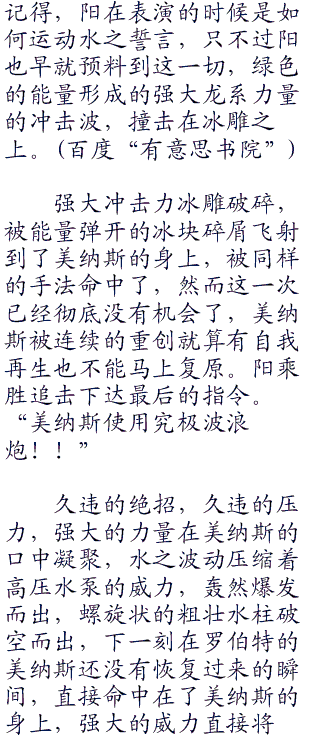 记得，阳在表演的时候是如
何运动水之誓言，只不过阳
也早就预料到这一切，绿色
的能量形成的强大龙系力量
的冲击波，撞击在冰雕之
上。(百度“有意思书院”)
强大冲击力冰雕破碎，
被能量弹开的冰块碎屑飞射
到了美纳斯的身上，被同样
的手法命中了，然而这一次
已经彻底没有机会了，美纳
斯被连续的重创就算有自我
再生也不能马上复原。阳乘
胜追击下达最后的指令。
“美纳斯使用究极波浪
炮！！”
久违的绝招，久违的压
力，强大的力量在美纳斯的
口中凝聚，水之波动压缩着
高压水泵的威力，轰然爆发
而出，螺旋状的粗壮水柱破
空而出，下一刻在罗伯特的
美纳斯还没有恢复过来的瞬
间，直接命中在了美纳斯的
身上，强大的威力直接将